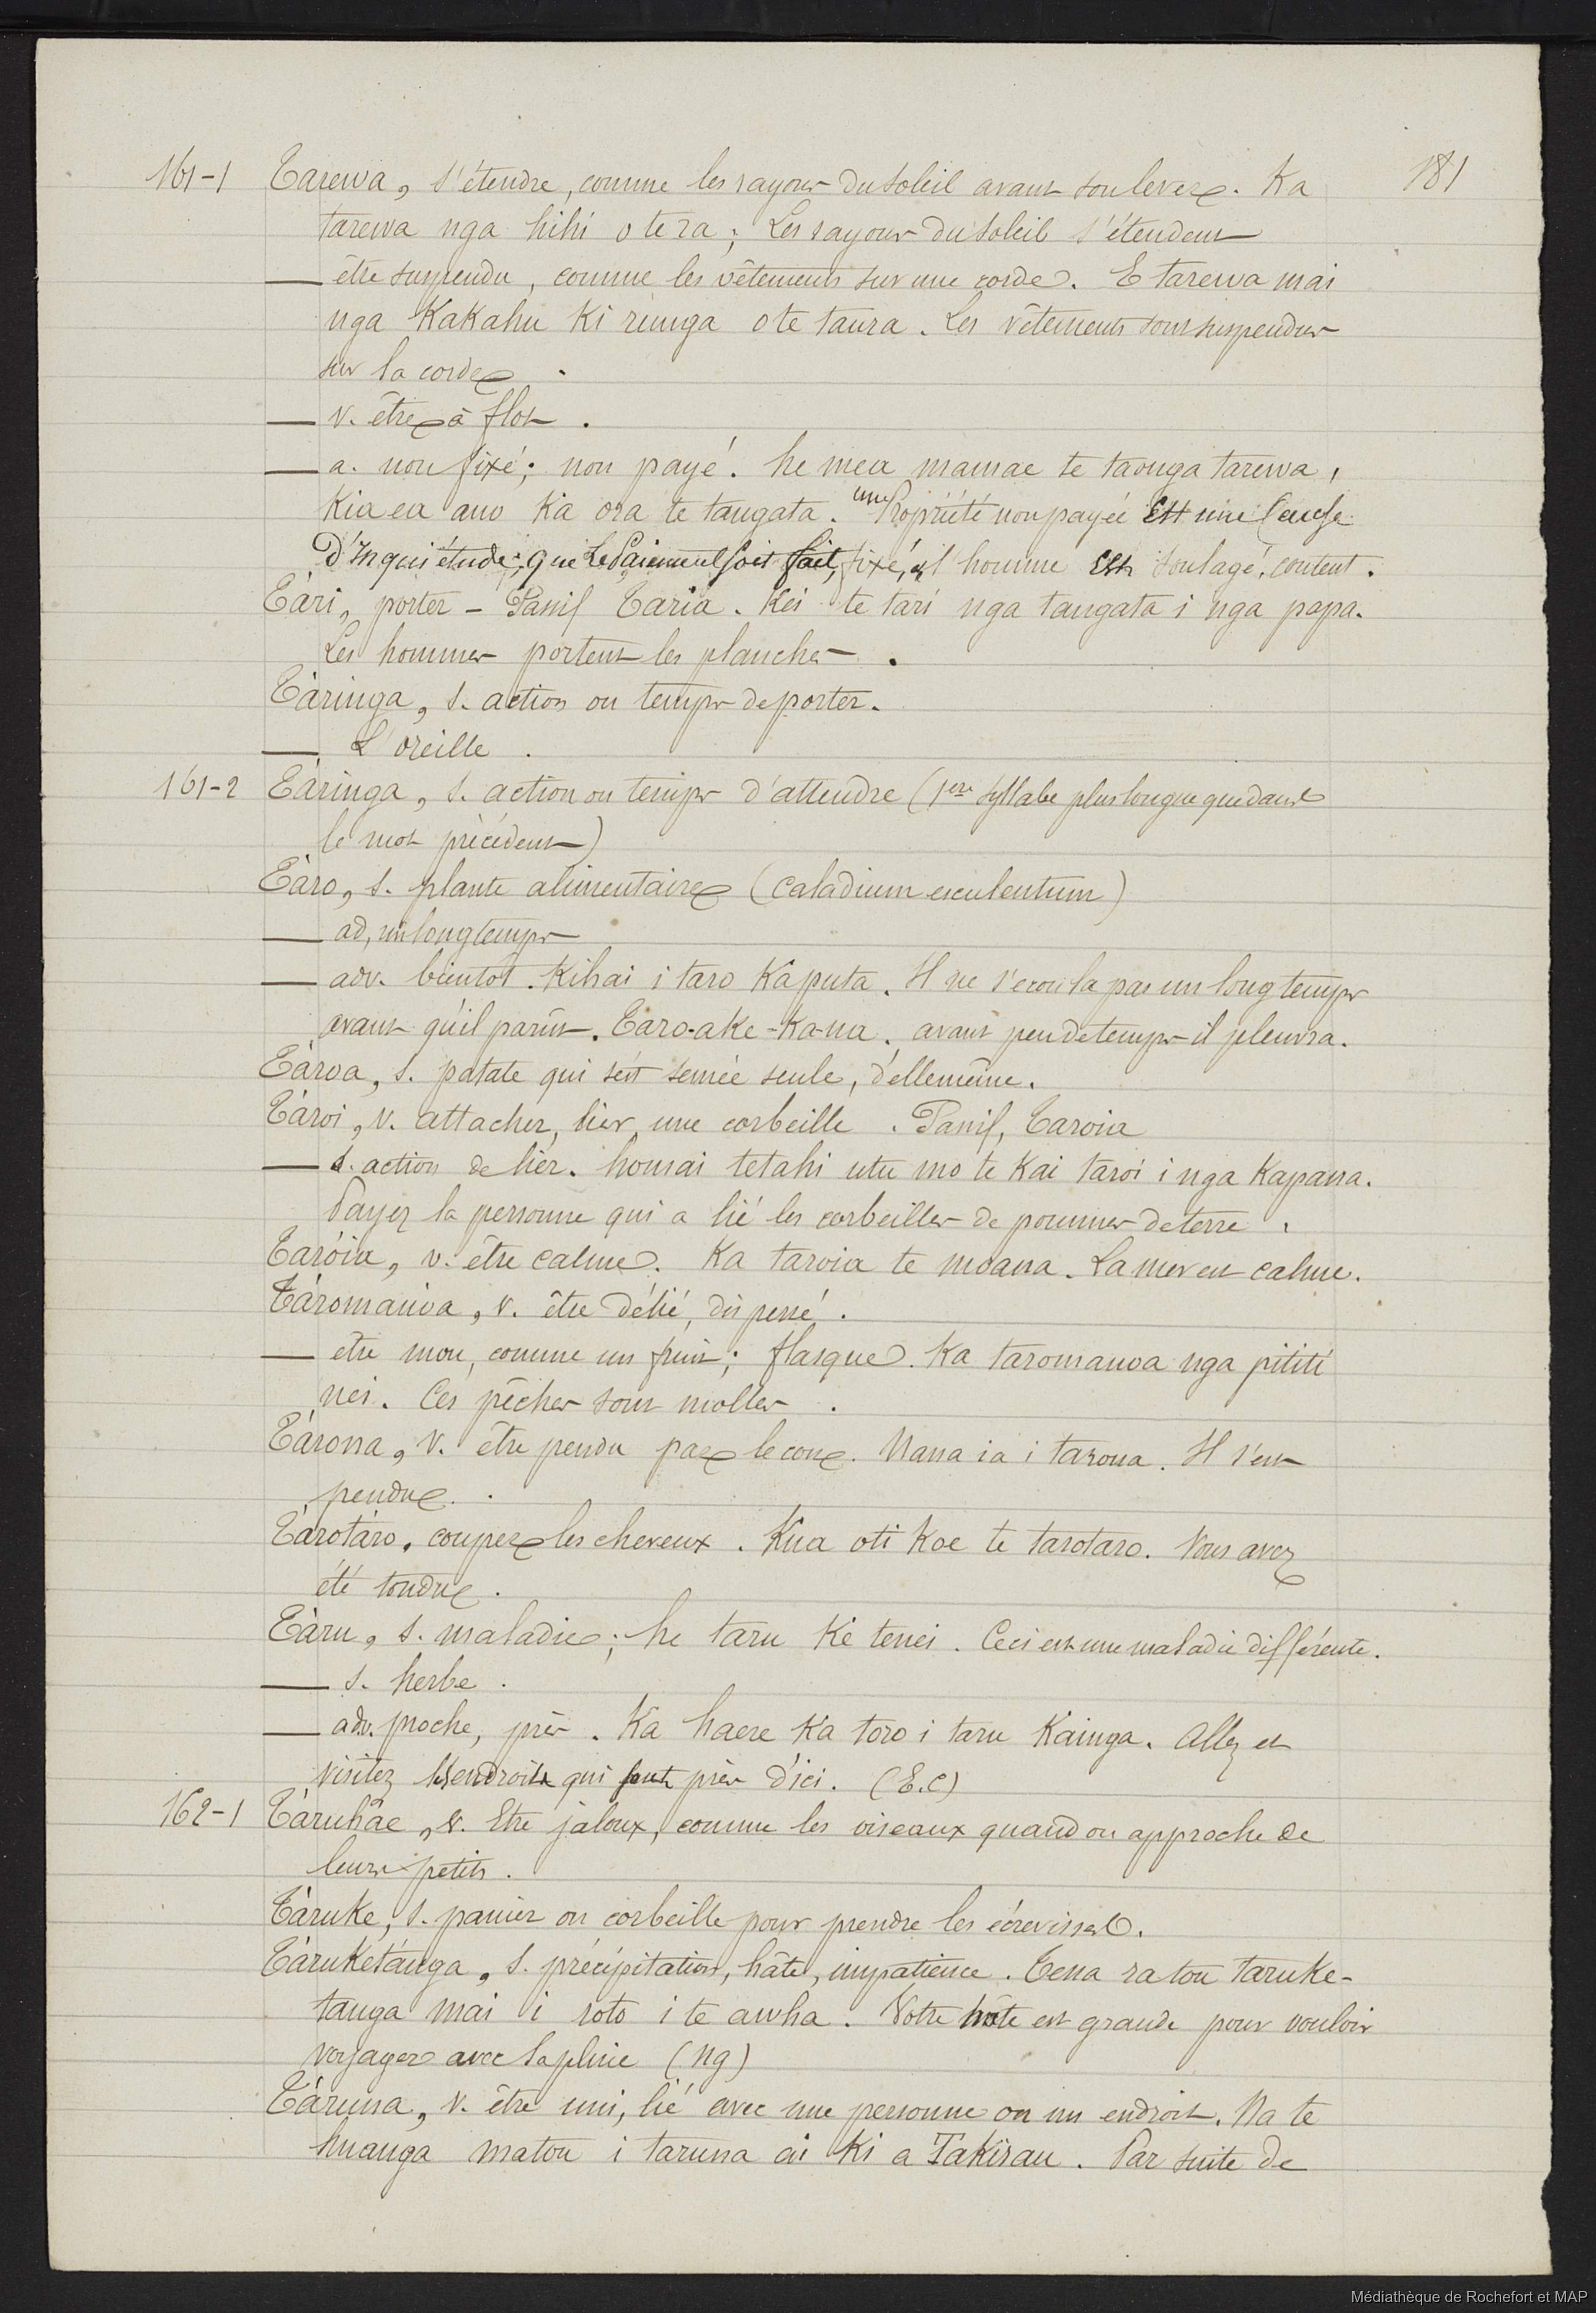 181
161-1 Tarewa, s'étendre, comme les rayons du soleil avant son lever. Ka
tarewa nga hihi o te ra; Les rayons du soleil s'étendent
— être suspendu, comme les vêtements sur une corde. E tarewa mai
nga Kakahu Ki runga o te taura. Les vêtements sont suspendus
sur la corde.
— v. être à flot.
— a. non fixé; non payé. he mea mamae te taonga tarewa,
Kia ea ano Ka ora te tangata. une Propriété non payée Est une Cause
D'Inquiétude; que Le Paiement soit fait, fixé, et l'homme Est soulagé, content.
Tàri, porter – Passif Taria. Kei te tari nga tangata i nga papa.
Les hommes portent les planches.
Tàringa, s. action ou temps de porter.
— L'oreille.
161-2 Tàringa, s. action ou temps d'attendre (1ere syllabe plus longue que dans
le mot précédent)
Tàro, s. plante alimentaire (caladium esculentum)
— ad, un long temps
— adv. bientot. Kihai i taro Ka puta. Il ne s'ecoula pas un long temps
avant qu'il parût. Taro-ake-Ka-ua. avant peu de temps il pleuvra.
Tàroa, s. patate qui s'est semée seule, d'elle même.
Tàroi, v. attacher, lier, une corbeille. Passif, Taroia
— s. action de lier. homai tetahi utu mo te Kai taroi i nga Kapana.
Payez la personne qui a lié les corbeilles de pommes de terre.
Taròia, v. être calme. Ka taroia te moana. La mer est calme.
Tàromawa, v. être délié, dispersé.
— etre mou, comme un fruit; flasque. Ka taromawa nga pititi
nei. Ces pêches sont molles.
Tàrona, v. être pendu par le cou. Nana ia i tarona. Il s'est
pendu.
Tàrotàro, couper les cheveux. Kua oti Koe te tarotaro. Vous avez
été tondu.
Tàru, s. maladie; he taru Ke tenei. Ceci est une maladie différente.
— s. herbe.
— adv. proche, près. Ka haere Ka toro i taru Kainga. Allez et
visitez les endroits qui sont près d'ici. (E.C)
162-1 Tàruhâe, v. Etre jaloux, comme les oiseaux quand on approche de
leurs petits.
Tàruke, s. panier ou corbeille pour prendre les écrevisses.
Tàruketánga, s. précipitation, hâte, impatience. Tena ra tou taruke-
tanga mai i roto i te awha. Votre hâte est grande pour vouloir
voyager avec la pluie (ng)
Tàruna, v. être uni, lié avec une personne ou un endroit. Na te
huanga matou i taruna ai Ki a Takirau. Par suite de
Médiathèque de Rochefort et MAP